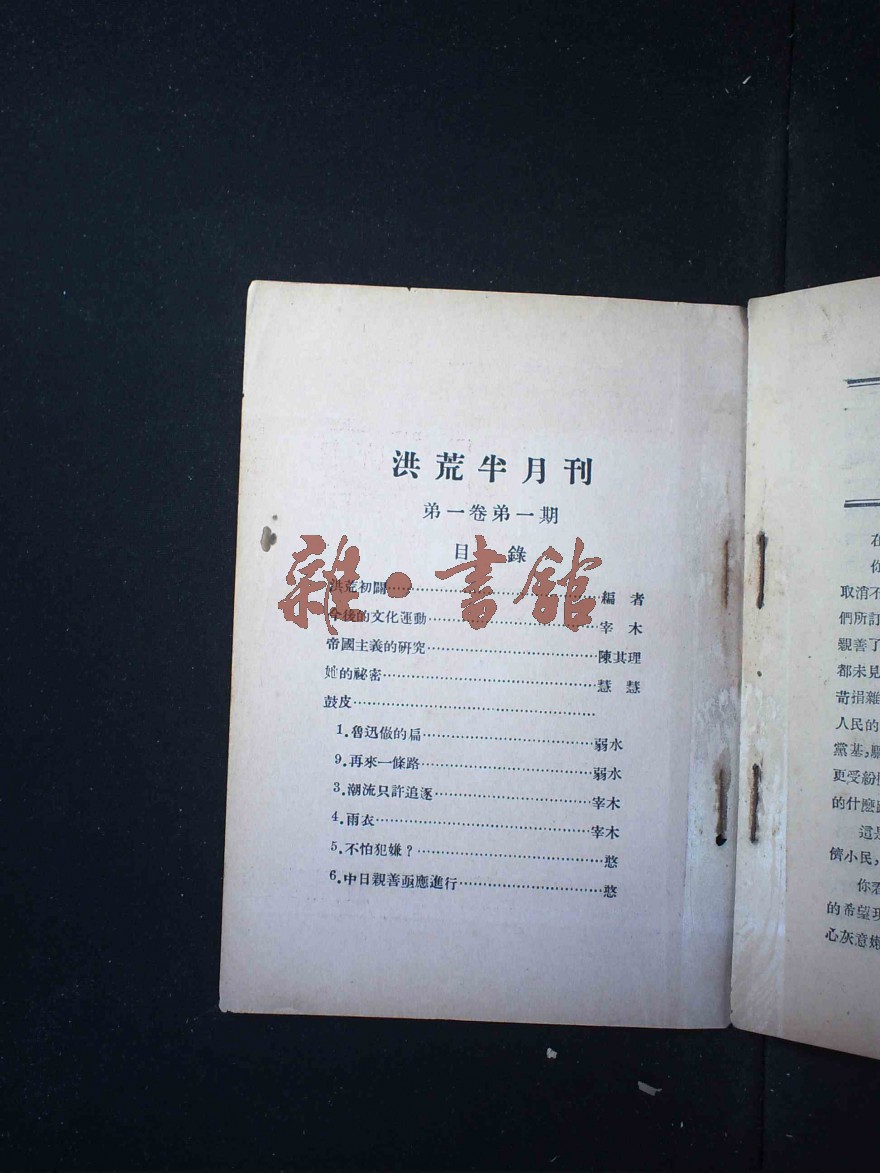 洪荒半月刊
弟一卷弟一期
目錄
洪荒初闢……編者
今後的文化運動……宰木
帝國主義的研究……陳其理
她的祕密……慧慧
鼓皮……
1.魯迅做的扁……弱水
9.再來一條路……弱水
3.潮流只許追逐……宰木
4.雨衣……宰木
5.不怕犯嫌？……憨
6.中日親善亟應進行……憨
雜·書館
在
你
取消不
們所訂
親善了
都未見
苛捐雜
人民的
黨基,
更受紛
的什麽
這是
儕小民,
你若
的希望
心灰意